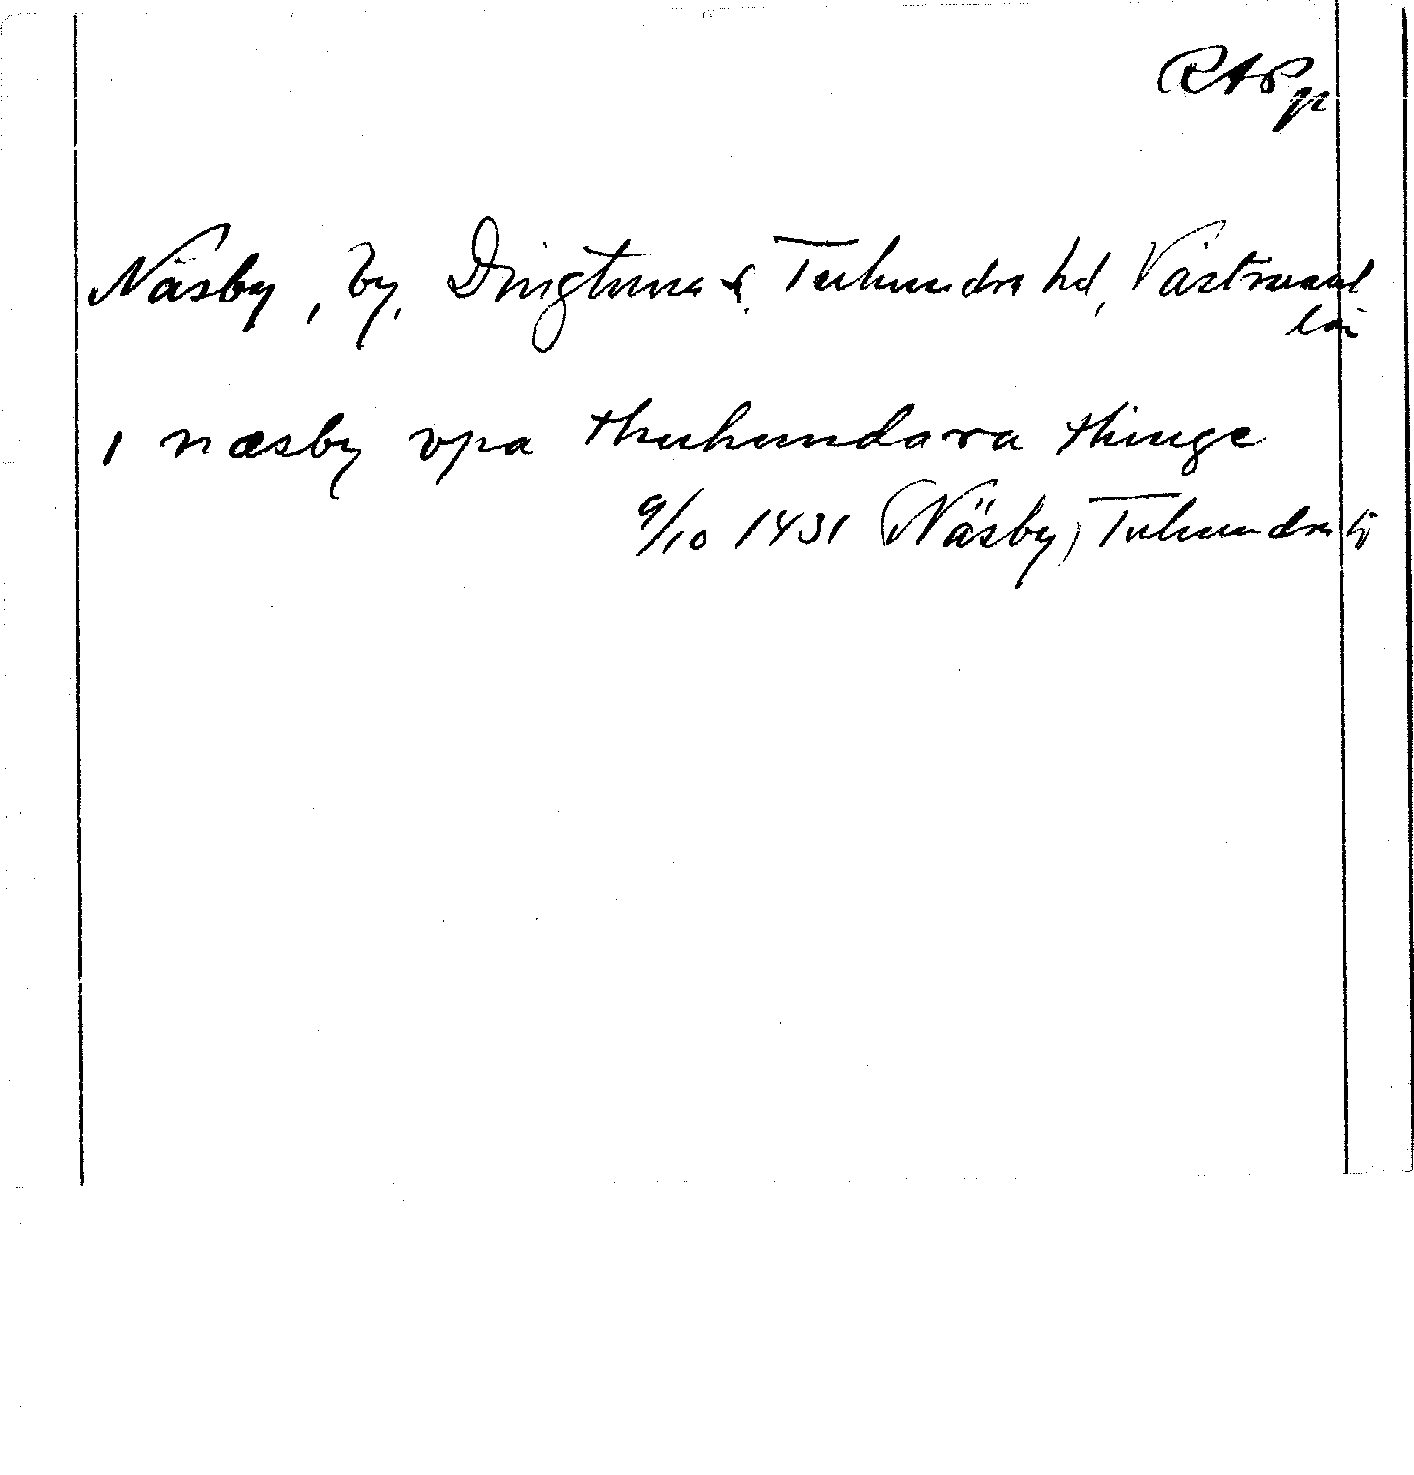 RAPp
Näsby, by, Dingtuna s., Tuhundra hd, Västmanl
län
i næsby vpa thuhundara thinge
9/10 1431 (Näsby, Tuhundra